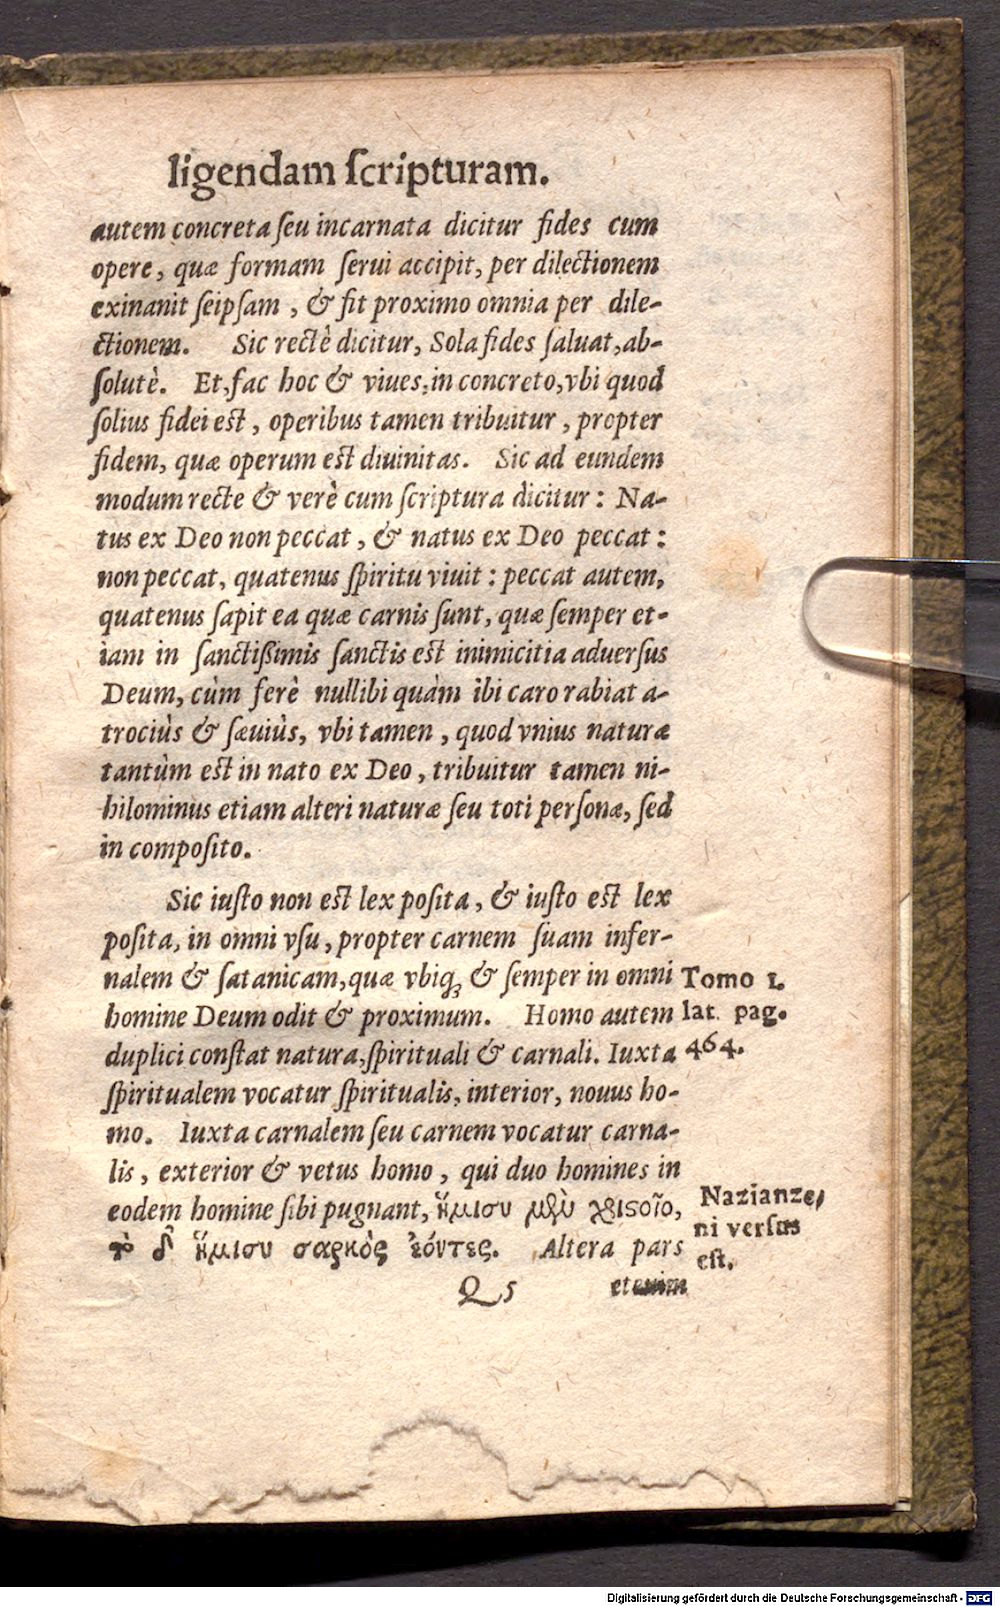 ligendam ſcripturam.
autem concreta ſeu incarnata dicitur fides cum
opere, quæ formam ſerui accipit, per dilectionem
exinanit ſeipſam, & fit proximo omnia per dile-
ctionem. Sic rectè dicitur, Sola fides ſaluat, ab-
ſolutè. Et, fac hoc & viues, in concreto, vbi quod
ſolius fidei est, operibus tamen tribuitur, propter
fidem, quæ operum est diuinitas. Sic ad eundem
modum recte & verè cum ſcriptura dicitur: Na-
tus ex Deo non peccat, & natus ex Deo peccat:
non peccat, quatenus ſpiritu viuit: peccat autem,
quatenus ſapit ea quæ carnis ſunt, quæ ſemper et-
iam in ſanctißimis ſanctis est inimicitia aduerſus
Deum, cùm ferè nullibi quàm ibi caro rabiat a-
trociùs & ſæuiùs, vbi tamen, quod vnius naturæ
tantùm est in nato ex Deo, tribuitur tamen ni-
hilominus etiam alteri naturæ ſeu toti perſonæ, ſed
in compoſito.
Sic iuſto non est lex poſita, & iuſto est lex
poſita, in omni vſu, propter carnem ſuam infer-
nalem & ſatanicam, quæ vbiq; & ſemper in omni
homine Deum odit & proximum. Homo autem
duplici conſtat natura, ſpirituali & carnali. Iuxta
ſpiritualem vocatur ſpiritualis, interior, nouus ho-
mo. Iuxta carnalem ſeu carnem vocatur carna-
lis, exterior & vetus homo, qui duo homines in
eodem homine ſibi pugnant, ἥμισυ μὲν χριστοῖο,
τὸ δ' ἥμισυ σαρκὸς ἐόντες. Altera pars
Q 5 etenim
Tomo 1.
lat. pag.
464.
Nazianze,
ni verſus
eſt.
Digitalisierung gefördert durch die Deutsche Forschungsgemeinschaft - DFG